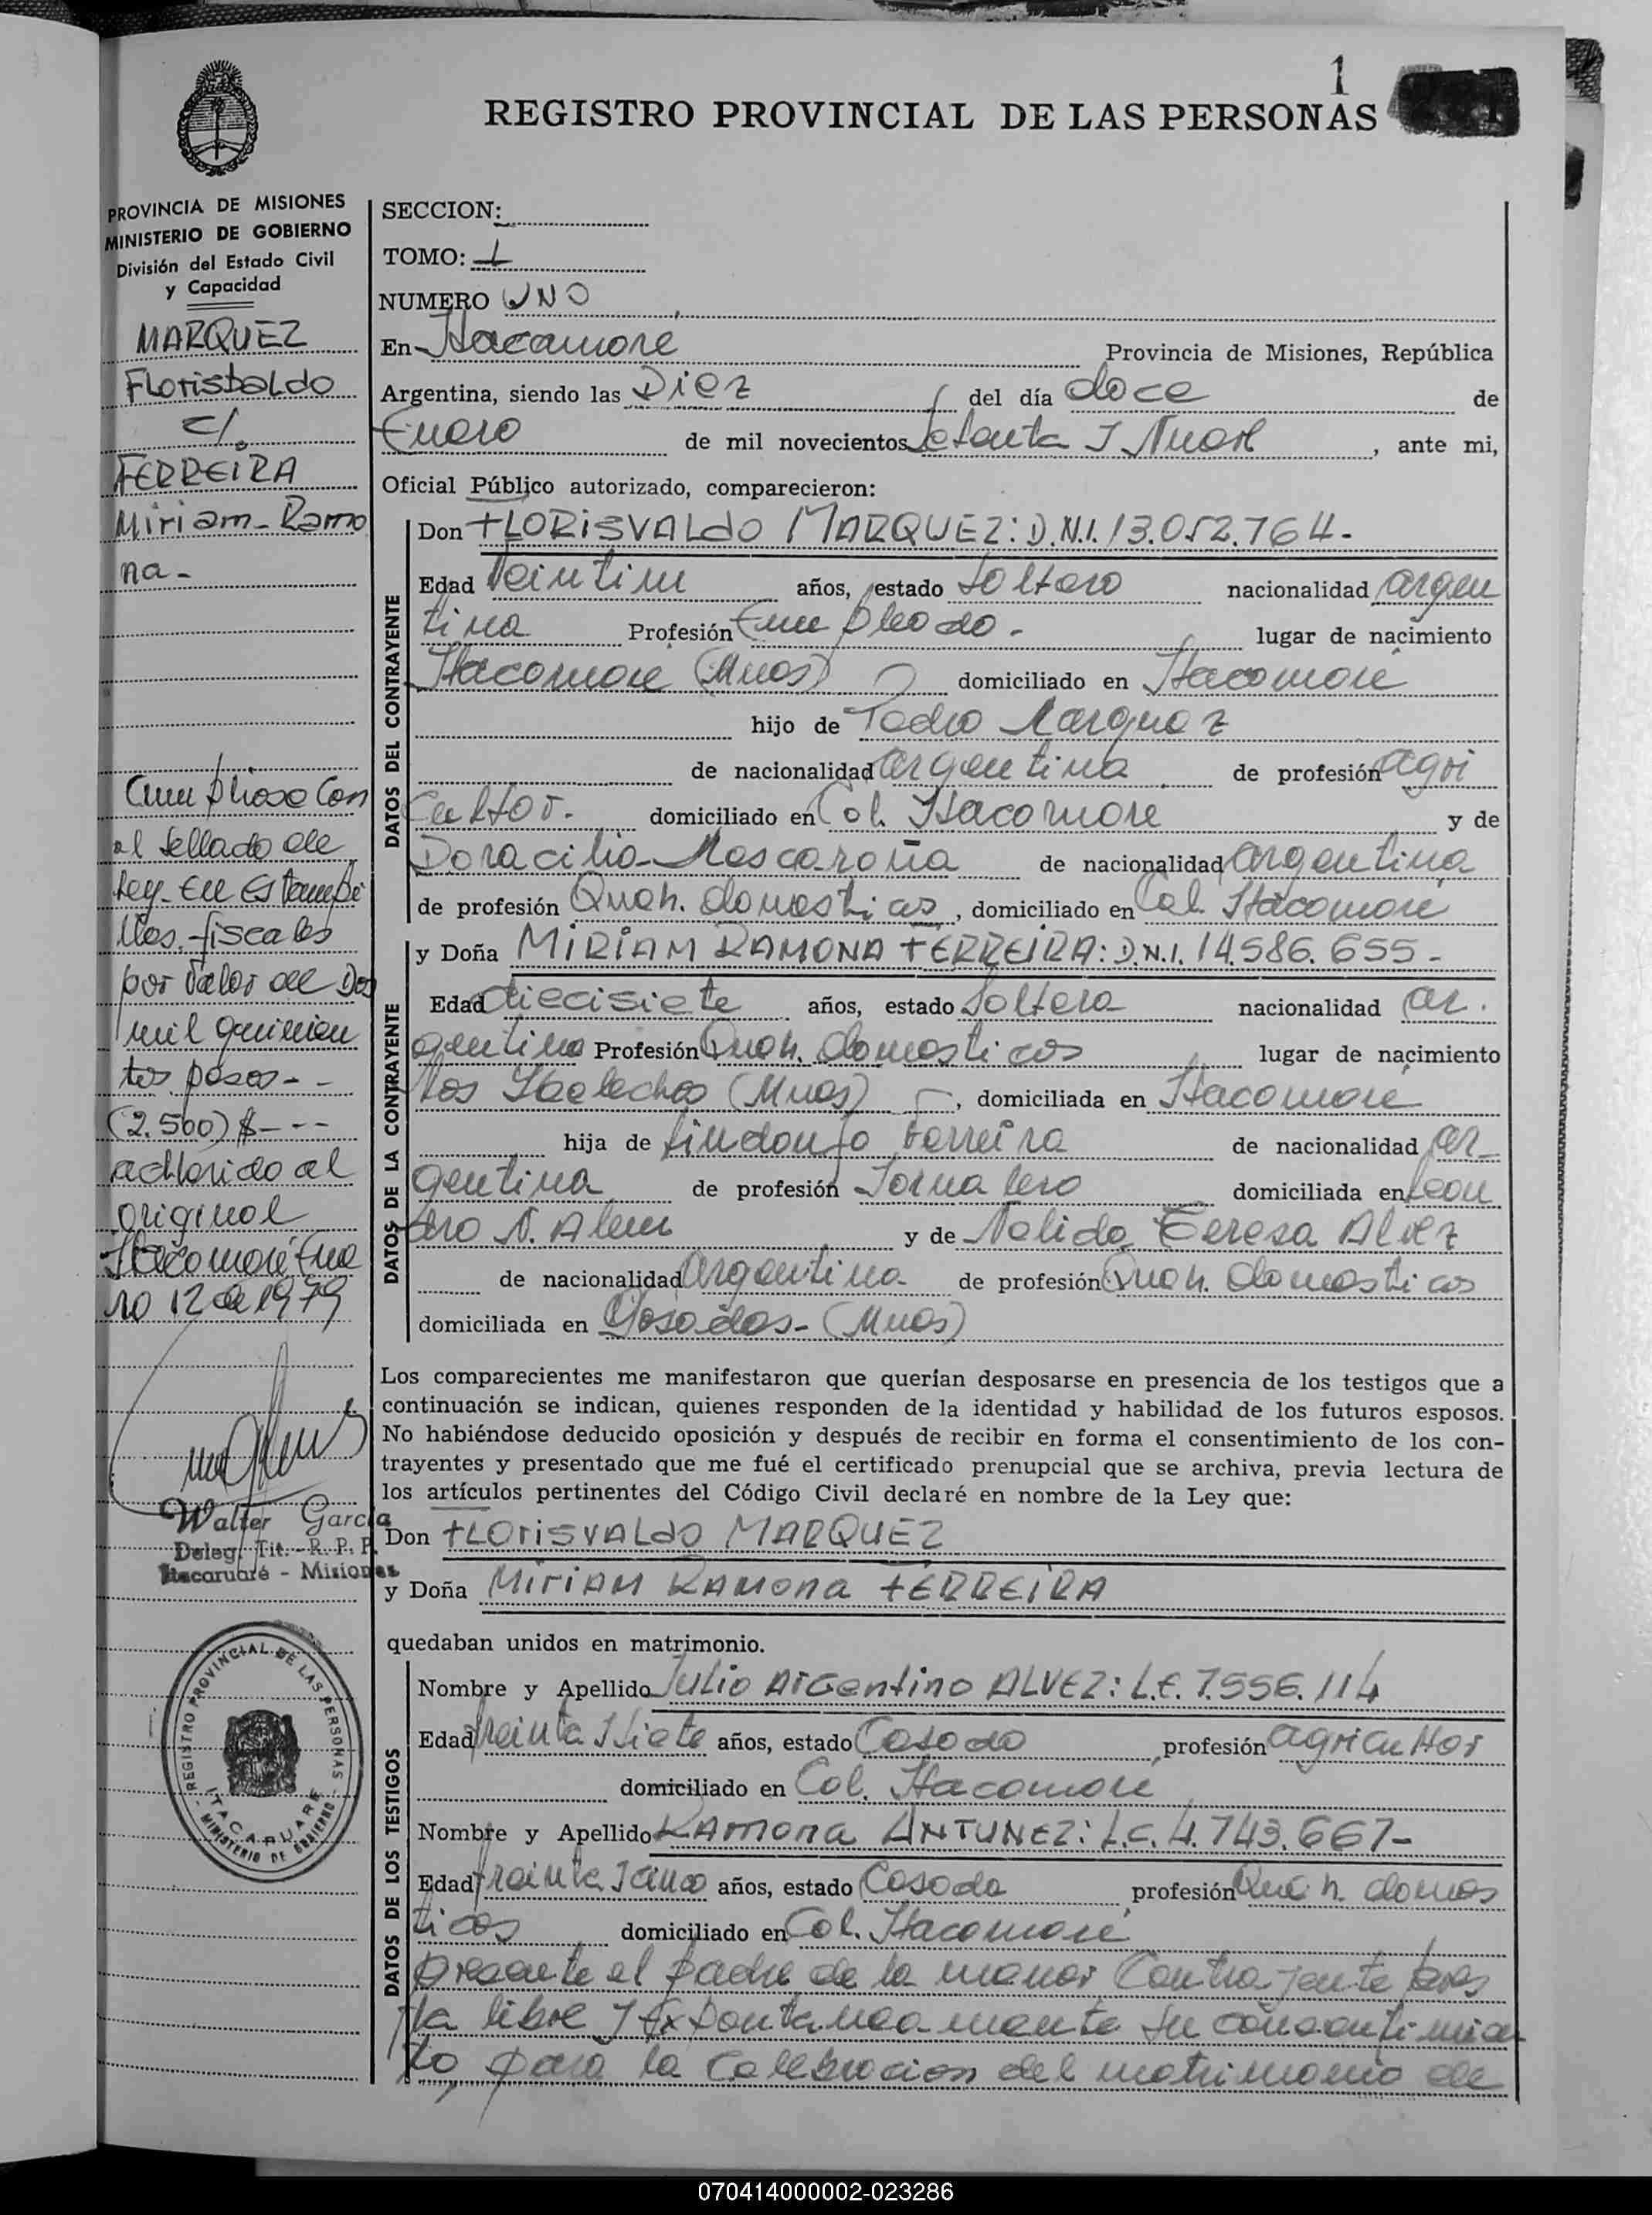 1
REGISTRO PROVINCIAL DE LAS PERSONAS
PROVINCIA DE MISIONES
MINISTERIO DE GOBIERNO
División del Estado Civil
y Capacidad
MARQUEZ
Florisbaldo
c/.
FERREIRA
Miriam-Ramo
na-
Cumpliose Con
el Sellado de
Ley. En Estampi
llas, fiscales
por Valor de Dos
mil quinien
tos pesos--
(2.500)$---
adherido al
original
Itacaruaré Ene
ro 12 de 1979
Walter García
Deleg. Tit. - R. P. P.
Itacaruaré - Misiones
REGISTRO PROVINCIAL DE LAS PERSONAS
ITACARUARE
MINISTERIO DE GOBIERNO
SECCION:
TOMO: 1
NUMERO UNO
En Itacaruare Provincia de Misiones, República
Argentina, siendo las Diez del día doce de
Enero de mil novecientos Setenta y Nueve, ante mi,
Oficial Público autorizado, comparecieron:
DATOS DEL CONTRAYENTE
Don FLORISVALdO MARQUEZ: D.N.I. 13.052.764-
Edad Veintiun años, estado Soltero nacionalidad argen
tina Profesión Empleado- lugar de nacimiento
Itacaruare (Mnes) domiciliado en Itacaruaré
hijo de Pedro Marquez
de nacionalidad argentina de profesión agri
cultor. domiciliado en Col. Itacaruare y de
Doracilia de nacionalidad argentina
de profesión Queh. domesticos, domiciliado en Col. Itacaruaré
DATOS DE LA CONTRAYENTE
y Doña MIRIAM RAMONA FERREIRA: D.N.I. 14.586.655-
Edad diecisiete años, estado Soltera nacionalidad ar.
gentina Profesión Queh. domesticos lugar de nacimiento
Los Helechos (Mnes), domiciliada en Itacaruaré
hija de Lindonfo Ferreira de nacionalidad ar-
gentina de profesión Jornalero domiciliada en Lean
dro N. Alem y de Nelida Teresa Alvez
de nacionalidad Argentina de profesión Queh. domesticos
domiciliada en Posadas-(Mnes)
Los comparecientes me manifestaron que querían desposarse en presencia de los testigos que a
continuación se indican, quienes responden de la identidad y habilidad de los futuros esposos.
No habiéndose deducido oposición y después de recibir en forma el consentimiento de los con-
trayentes y presentado que me fué el certificado prenupcial que se archiva, previa lectura de
los artículos pertinentes del Código Civil declaré en nombre de la Ley que:
Don FLOrisVALdO MARQUEZ
y Doña MiriAM RAMona FERREIRA
quedaban unidos en matrimonio.
DATOS DE LOS TESTIGOS
Nombre y Apellido Julio Argentino ALVEZ: L.E. 7.556.114
Edad treinta y Siete años, estado Casado profesión agricultor
domiciliado en Col. Itacaruaré
Nombre y Apellido RAMona ANTUNEZ: L.C. 4.743.667-
Edad treinta y cinco años, estado Casada profesión Queh. domes
ticos domiciliado en Col. Itacaruaré
presente el padre de la menor Contrayente pres
ta libre y Expontaneamente su consentimien
to, para la Celebracion del matrimonio de
070414000002-023286